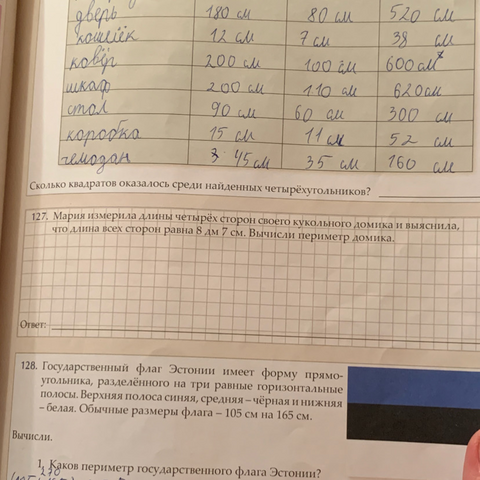 дверь 180 см 80 см 520 см
кошелёк 12 см 7 см 38 см
ковёр 200 см 100 см 600 см
шкаф 200 см 110 см 620 см
стол 90 см 60 см 300 см
коробка 15 см 11 см 52 см
чемодан 45 см 35 см 160 см
Сколько квадратов оказалось среди найденных четырёхугольников?
127. Мария измерила длины четырёх сторон своего кукольного домика и выяснила,
что длина всех сторон равна 8 дм 7 см. Вычисли периметр домика.
Ответ:
128. Государственный флаг Эстонии имеет форму прямо-
угольника, разделённого на три равные горизонтальные
полосы. Верхняя полоса синяя, средняя – чёрная и нижняя
– белая. Обычные размеры флага – 105 см на 165 см.
Вычисли.
1. Каков периметр государственного флага Эстонии?